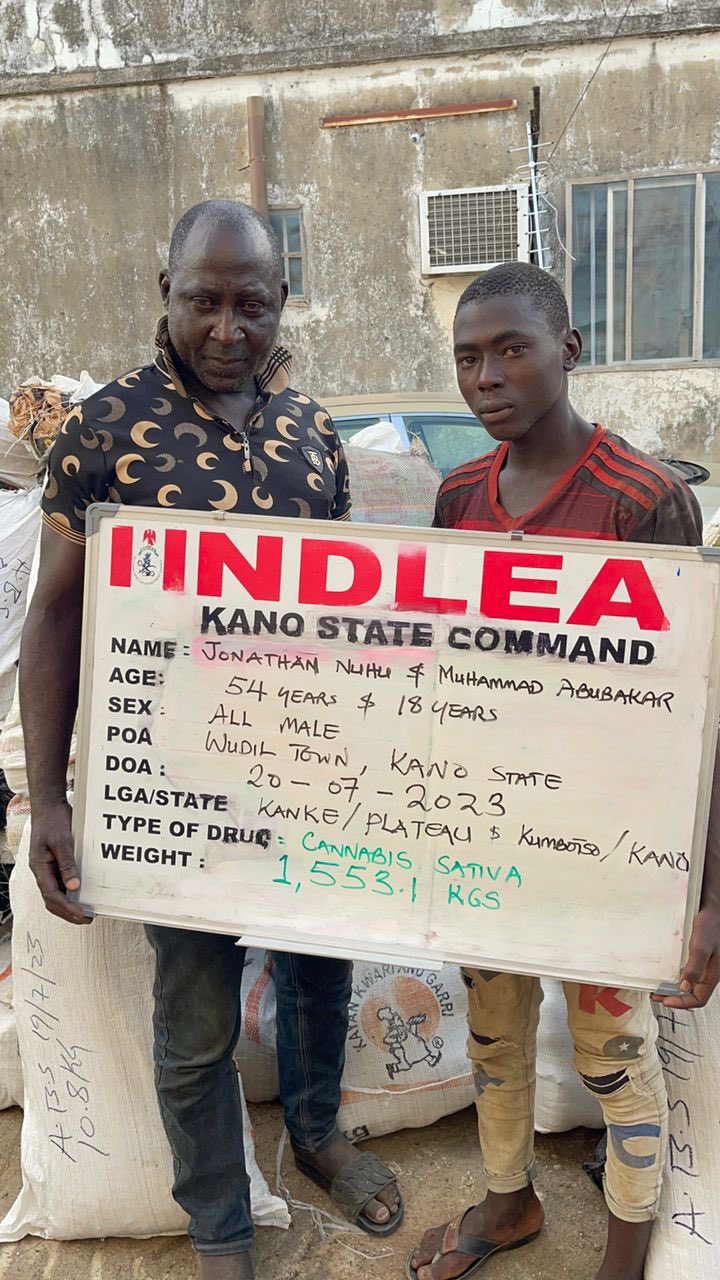 NDLEA
KANO STATE COMMAND
NAME: JONATHAN NUHU & MUHAMMAD ABUBAKAR
AGE: 54 YEARS & 18 YEARS
SEX: ALL MALE
POA WUDIL TOWN, KANO STATE
DOA: 20-07-2023
LGA/STATE KANKE/PLATEAU & KUMBOTSO/KANO
TYPE OF DRUG: CANNABIS SATIVA
WEIGHT: 1,553.1 KGS
A.T.B.S 19/7/23
10.8KG
KAYAN KWARI ANO GARRI
K
C
A.T.B.S 19/7